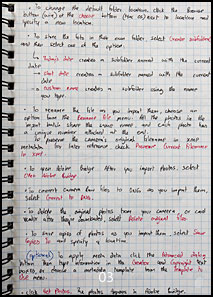 · To change the default folder location, click the Browse
button (Win) or the Choose button (Mac OS) next to Location and
specify a new location.
· To store the files in their own folder, select Create Subfolder
and then select one of the option.
↳ Today's date creates a subfolder named with the current
date.
→ Shot date creates a subfolder named with the current
date.
→ custom name creates a subfolder using the name
you type.
· To rename the files as you import them, choose an
option from the Rename Files menu. All the photos in the
import batch share the same name and each photo has
a unique number attached at the end.
To preserve the camera's original filename in XMP
metadata for later reference check Preserve Current Filename
in XMP.
· To open Adobe Bridge after you import photos, select
Open Adobe Bridge
· To convert Camera Raw files to DNGs as you import them,
select Convert to DNG.
· To delete the original photos from your camera or card
reader after they're downloaded, select Delete original files
· To save copies of photos as you import them, select Save
Copies To and specify a location.
· (optional) To apply meta data, click the Advanced dialog
button. Then type information in the Creator and Copyright text
boxes, or choose a metadata template from the Template to
Use menu.
· click Get Photos. The photos appears in Adobe Bridge.
03